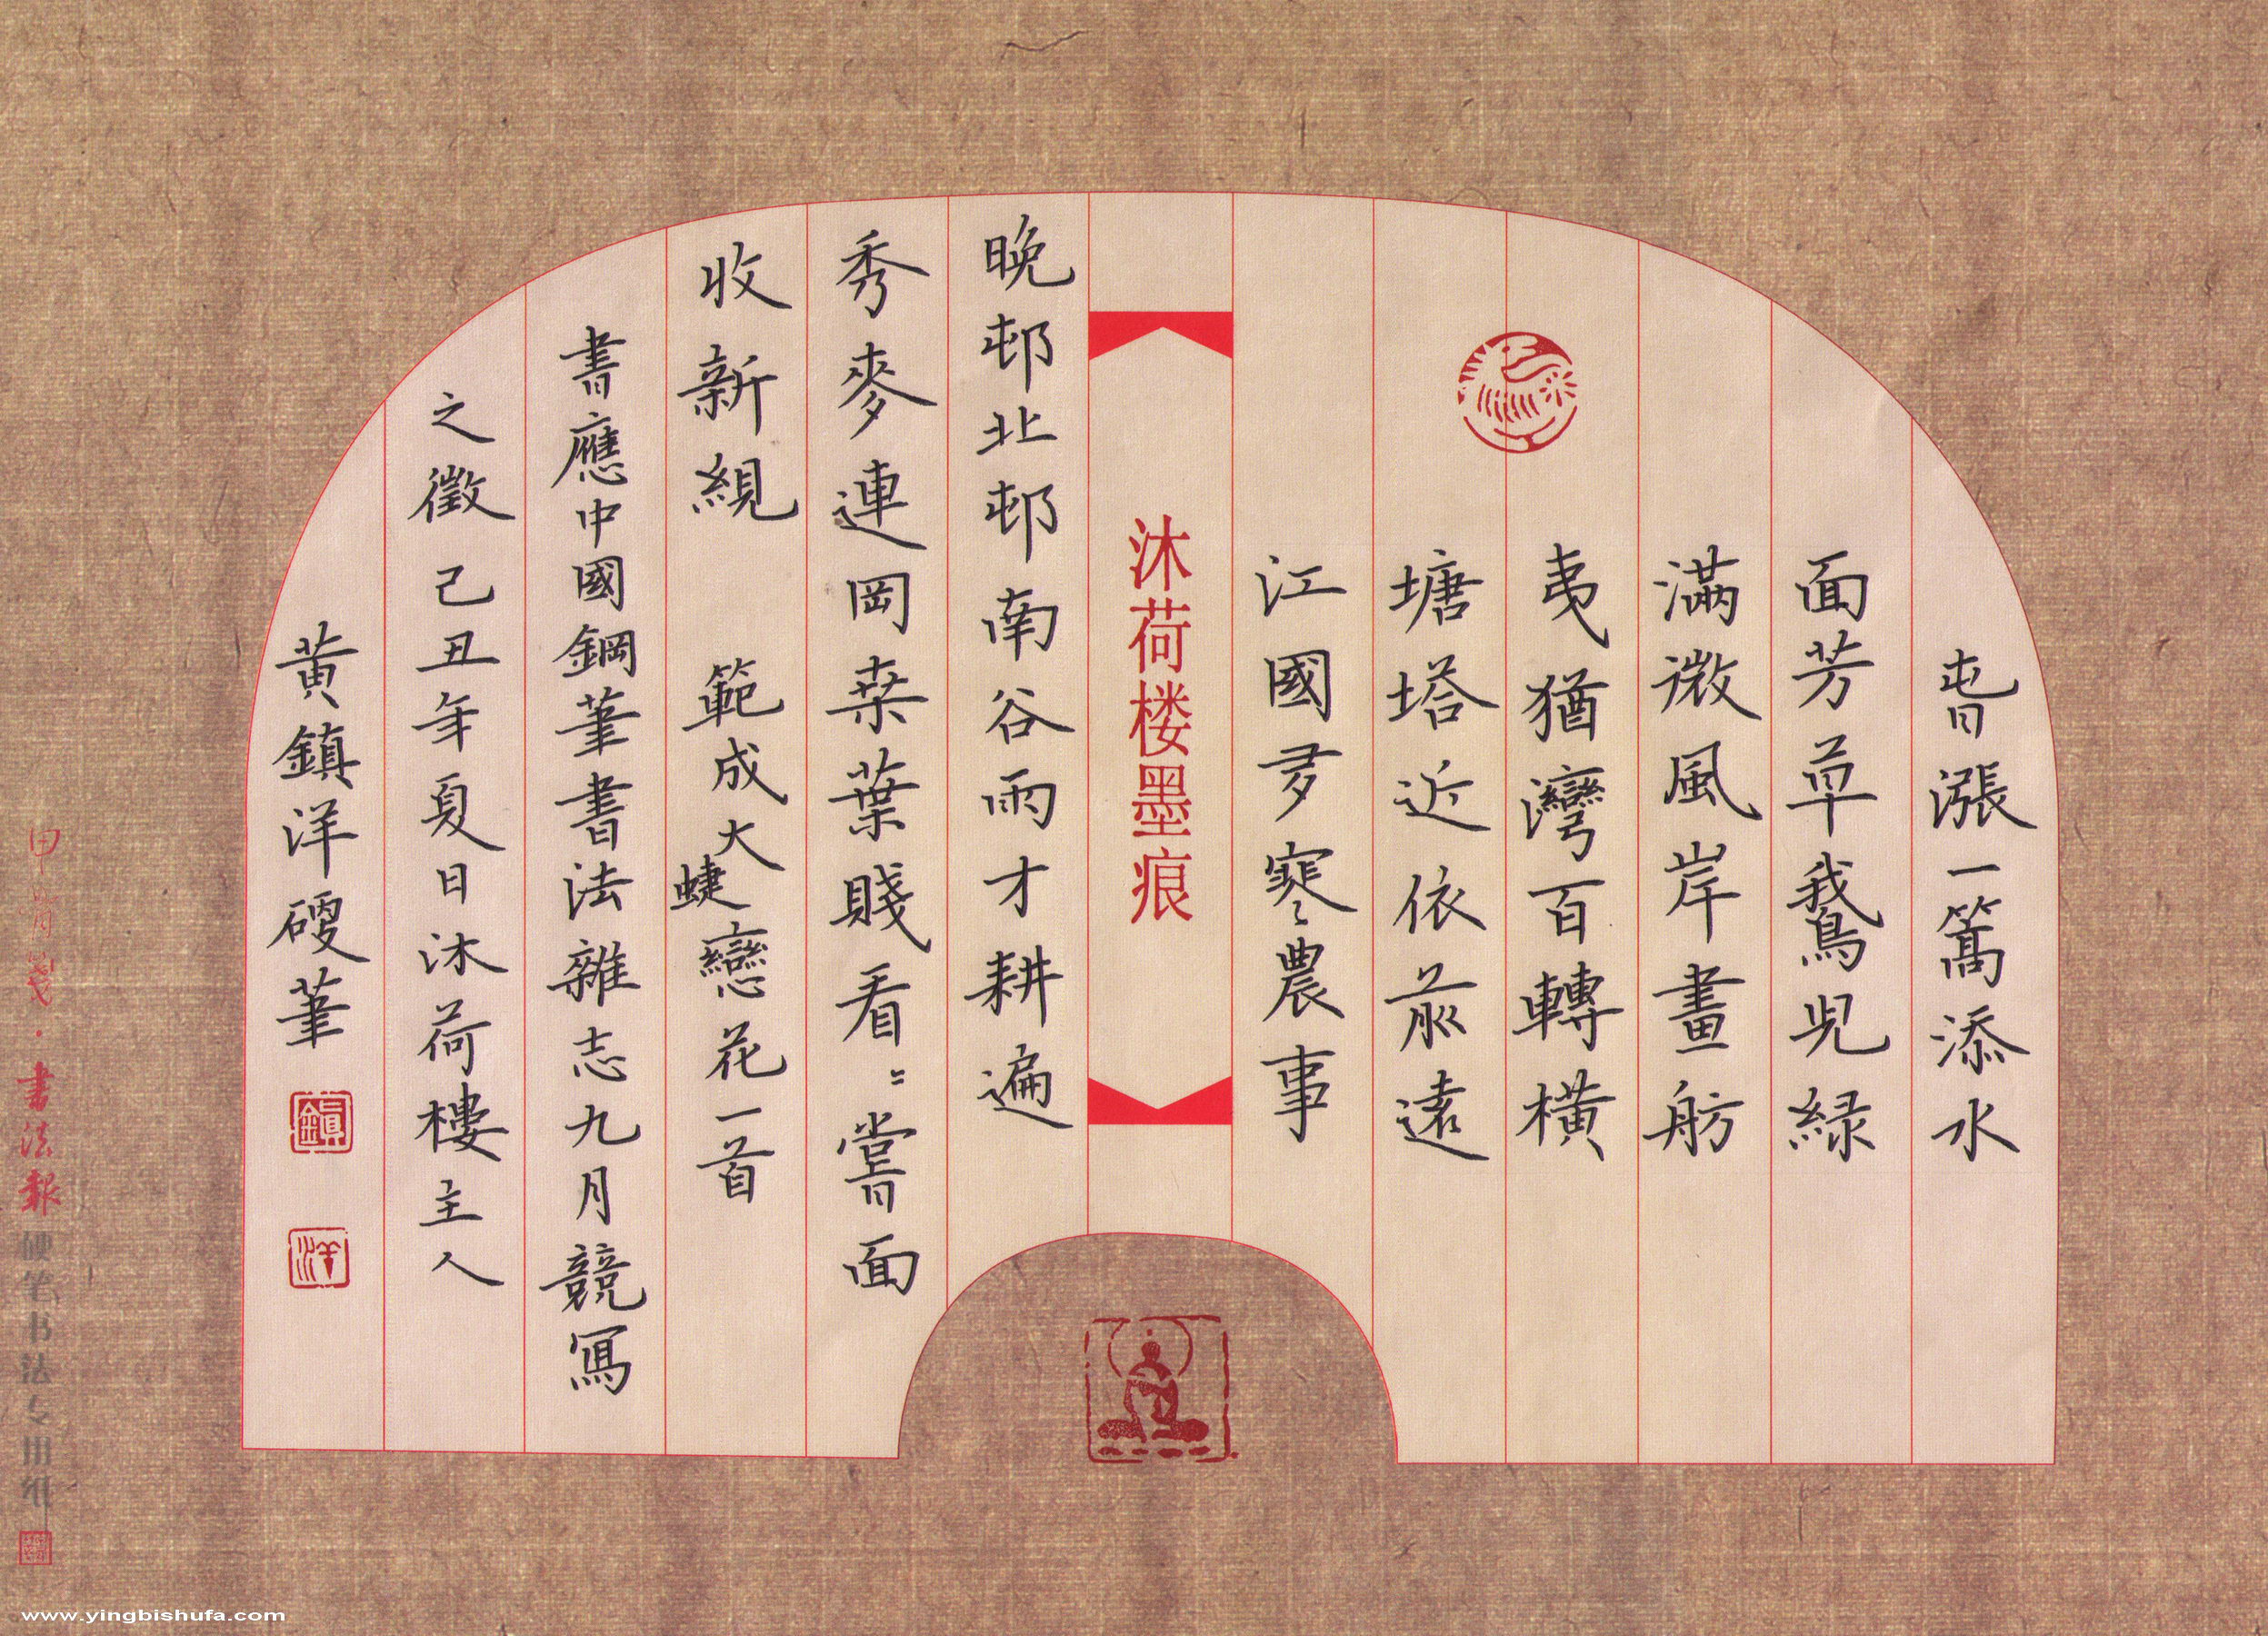 旾漲一篙添水
面芳草鵞児緑
滿微風岸畫舫
夷猶灣百轉橫
塘塔近依前遠
江國多寒農事
沐荷楼墨痕
晚邨北邨南谷雨才耕遍
秀麥連岡桒葉賤看〻嘗面
收新絸 範成大蜨戀花一首
書應中國鋼筆書法雜志九月競寫
之徵己丑年夏日沐荷樓主人
黄鎮洋硬筆
鎮
洋
甲骨箋·書法報 硬笔书法专用纸
www.yingbishufa.com